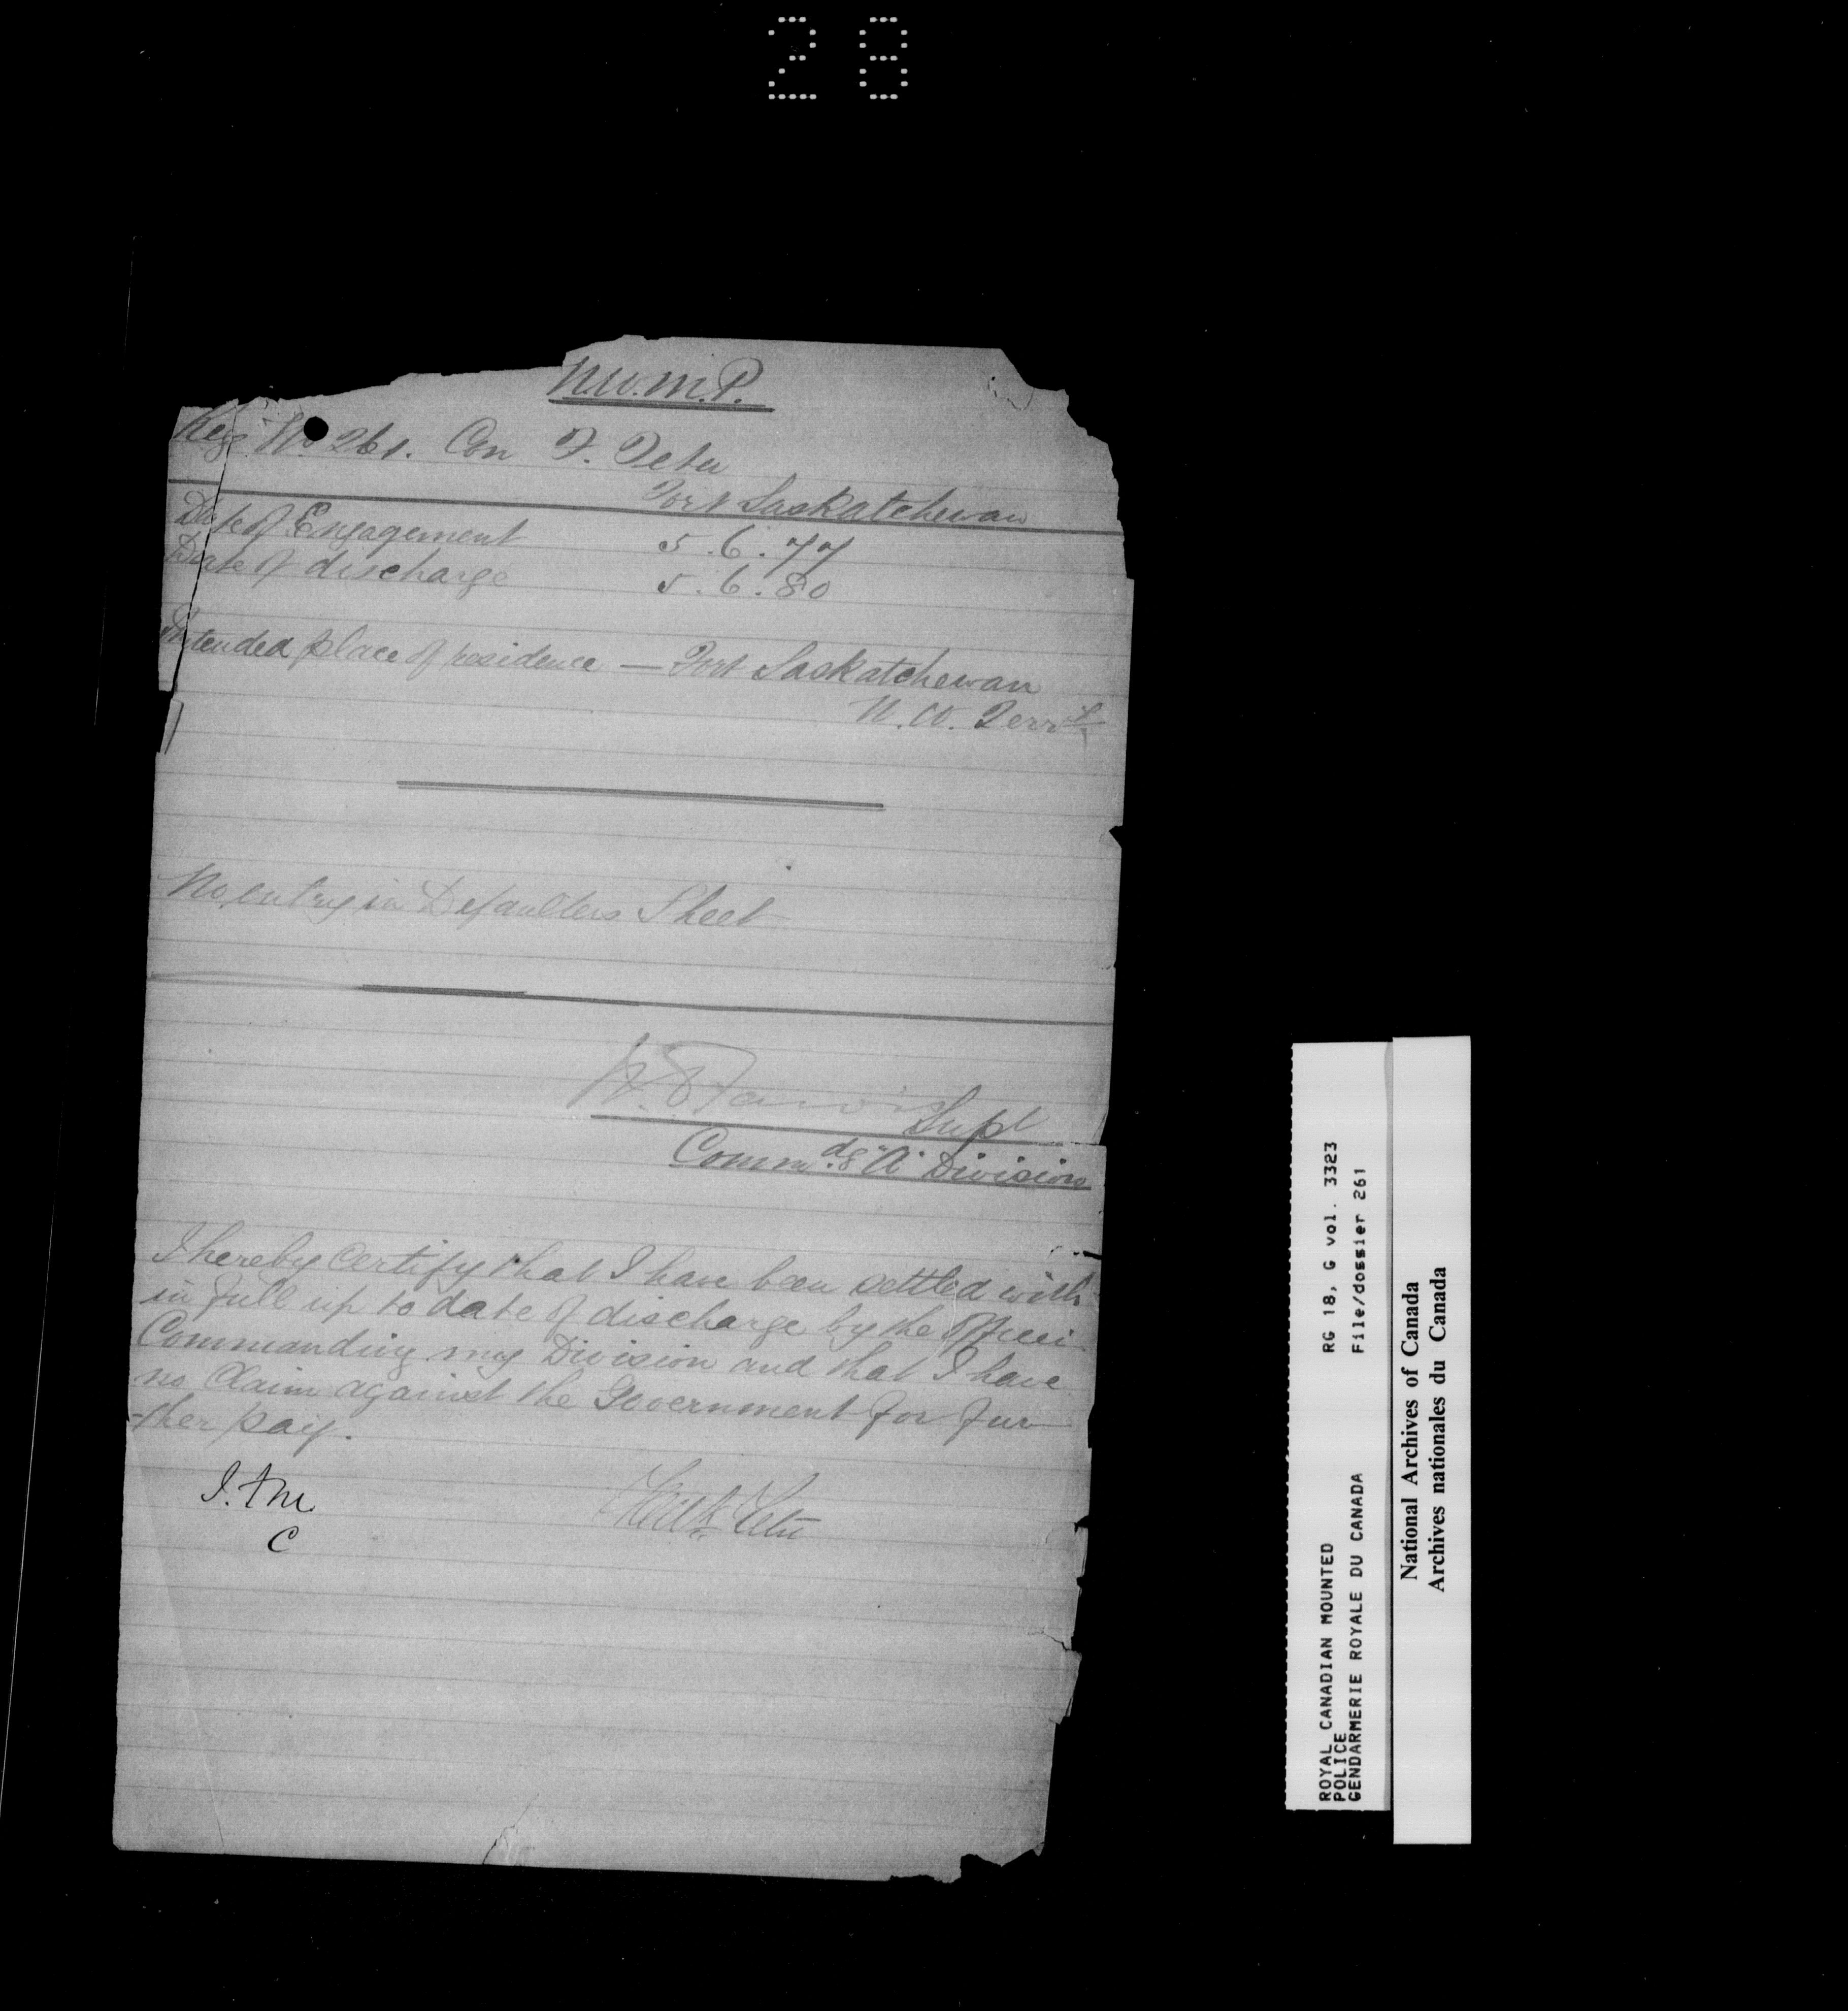 28
N.W.M.P.
Reg No 261. Con F. Tetu
Fort Saskatchewan
Date of Engagement 5.6.77
Date of discharge 5.6.80
Intended place of residence — Fort Saskatchewan
N.W. Terry
No entry in Defaulters Sheet
W.D. Jarvis Supt
Commdg "A" Division
I hereby certify that I have been settled with
in full up to date of discharge by the Officer
Commanding my Division and that I have
no Claim against the Government for fur
-ther pay.
Tetu
C
ROYAL CANADIAN MOUNTED RG 18, G vol. 3323
POLICE
GENDARMERIE ROYALE DU CANADA File/dossier 261
National Archives of Canada
Archives nationales du Canada